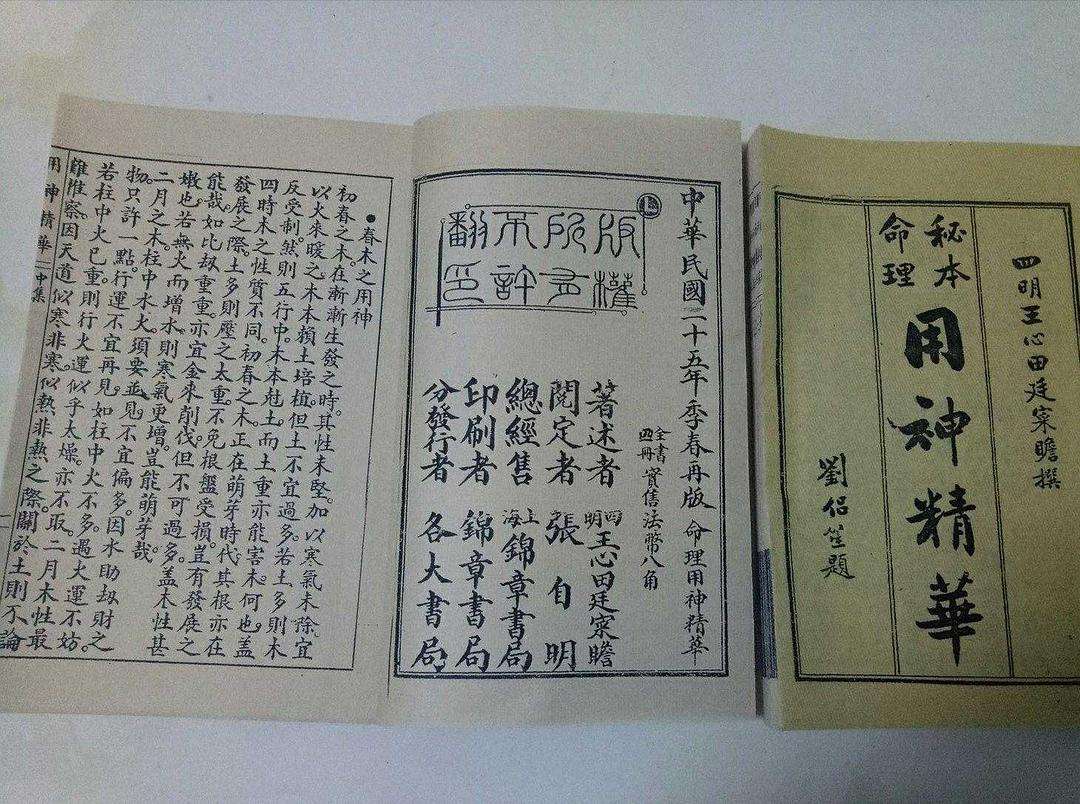 四明王心田廷寀瞻撰
秘本
命理
用神精華
劉侶笙題
中華民國二十五年季春再版 命理用神精華
全書
四冊
實售法幣八角
著述者 四明王心田廷寀瞻
閱定者 張自明
總經售 上海錦章書局
印刷者 錦章書局
分發行者 各大書局
版權所有
翻印不許
●春木之用神
初春之木在漸漸生發之時。其性未堅。加以寒氣未除宜
以火來暖之。木本賴土培植。但土不宜過多。若土多則木
反受制。然則五行中。木本尅土。而土重亦能害木。何也。蓋
四時木之性質不同。初春之木。正在萌芽時代。其根亦在
發展之際。土多則壓之太重。不免根盤受損。豈有發展之
能哉。如比刼重重。亦宜金來削伐。但不可過多。蓋木性甚
嫩也。若無火而增水。則寒氣更增。豈能萌芽哉
二月之木。柱中水火。須要並見。不宜偏多。因水助刼財之
物。只許一點。行運不宜再見。如柱中火不多。遇火運不妨。
若柱中火已重。則行火運。似乎太燥。亦不取。二月木性最
難推察。因天道似寒非寒。似熱非熱之際。關於土則不論
用神精華 中集